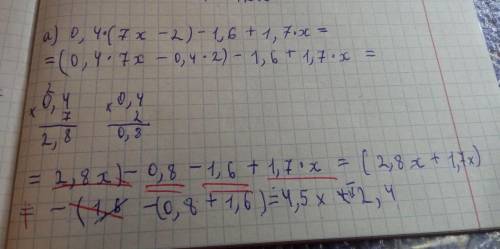 а) 0,4·(7x − 2) − 1,6 + 1,7·x =
= (0,4·7x − 0,4·2) − 1,6 + 1,7·x =
2
× 0,4 × 0,4
7 2
2,8 0,8
= 2,8x) − 0,8 − 1,6 + 1,7·x = (2,8x + 1,7x)
= − (1,6 − (0,8 + 1,6) = 4,5x − 2,4